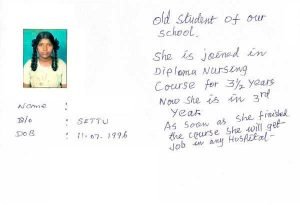 Old Student of our
school.
She is joined in
Diploma Nursing
Course for 3½ Years
Now She is in 3rd
Year
As soon as she finished
the course she will get
Job in any Hospital-
Name :
D/o : SETTU
DOB : 11-07-1996